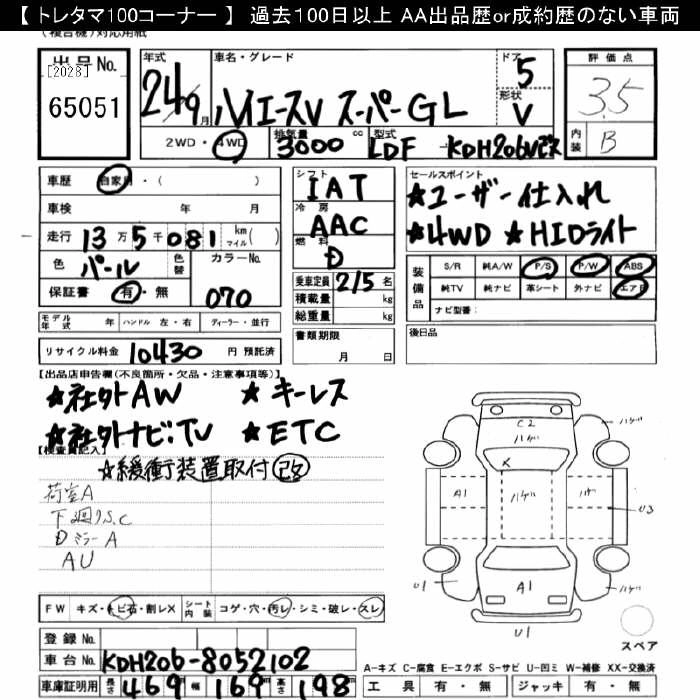 【 トレタマ100コーナー 】 過去100日以上 AA出品歴or成約歴のない車両
(複合機)対応用紙
出品No.
[2028]
65051
年式
24 9月
車名・グレード
ハイエースV スーパーGL
ドア
5
形状
V
2WD・4WD
排気量
3000 cc
型式
LDF - KDH206V
評価点
3.5
内装
B
車歴 自家用・( )
車検 年 月
走行 13万5千081 km マイル( )
色 パール 色替 カラーNo.
保証書 有・無 070
モデル年式 年 ハンドル 左・右 ディーラー・並行
リサイクル料金 10430 円 預託済
シフト
IAT
冷房
AAC
燃料
D
乗車定員 2/5 名
積載量 kg
総重量 kg
書類期限
月 日
セールスポイント
★ユーザー仕入れ
★4WD ★HIDライト
装備品
S/R 純A/W P/S P/W ABS
純TV 純ナビ 革シート 外ナビ エアB
ナビ型番:
後日品
【出品店申告欄(不良箇所・欠品・注意事項等)】
★社外AW ★キーレス
★社外ナビ:TV ★ETC
【検査員記入】
☆緩衝装置取付 改
荷室A
下廻りS.C
Dミラー A
AU
FW キズ・トビ石・割レX シート内装 コゲ・穴・汚レ・シミ・破レ・スレ
登録No.
車台No. KDH206-8052102
車庫証明用 長さ 469 幅 169 高さ 198
C2
ハゲ
ハゲ
ハゲ
X
A1
ハゲ
ハゲ
U3
U1
A1
U1
スペア
A-キズ C-腐食 E-エクボ S-サビ U-凹ミ W-補修 XX-交換済
工具 有・無 ジャッキ 有・無